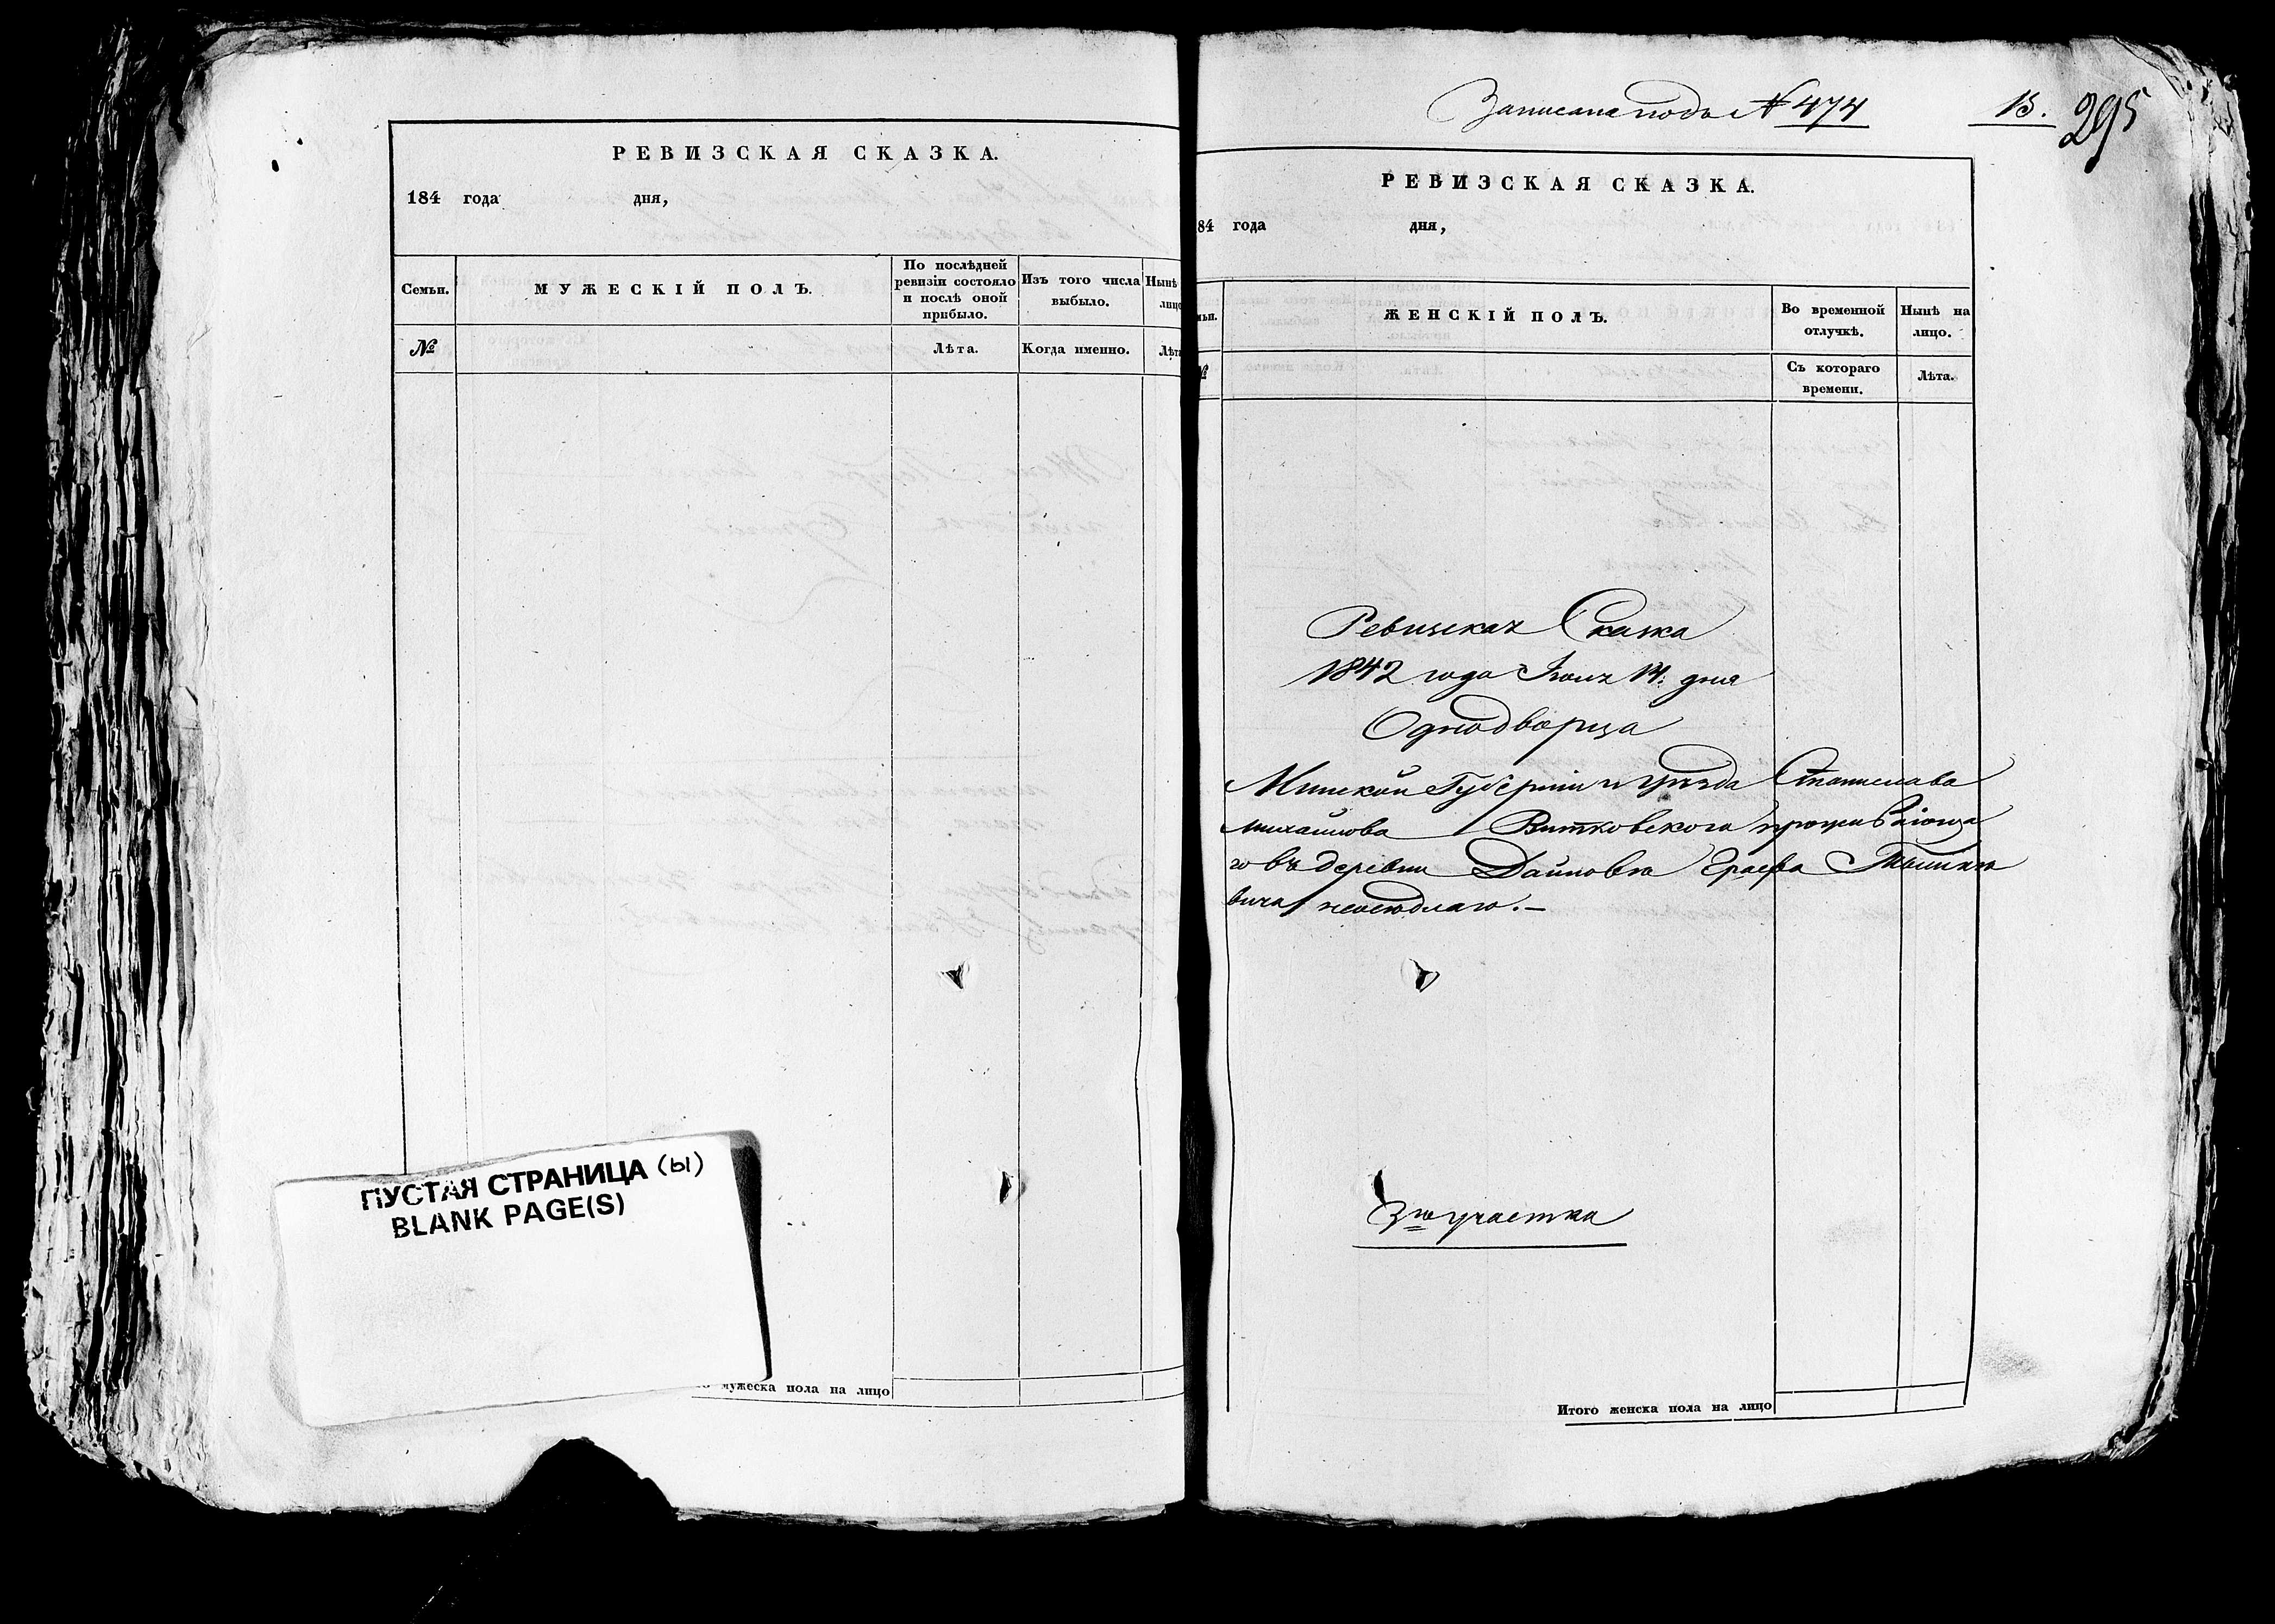 РЕВИЗСКАЯ СКАЗКА.
184 года дня,
Семьи.
МУЖЕСКІЙ ПОЛЪ.
По послѣдней
ревизіи состояло
и послѣ оной
прибыло.
Изъ того числа
выбыло.
Нынѣ
лицо
№
Лѣта.
Когда именно.
Лѣта
ПУСТАЯ СТРАНИЦА (ы)
BLANK PAGE(S)
мужеска пола на лицо
Записана подъ № 474
13.
295
РЕВИЗСКАЯ СКАЗКА.
84 года дня,
ьи.
ЖЕНСКІЙ ПОЛЪ.
Во временной
отлучкѣ.
Нынѣ на
лицо.
№
Съ котораго
времени.
Лѣта.
Ревизская Сказка
1842 года Іюня 14: дня
Однодворца
Минской Губерніи и уѣзда Станислава
Михайлова Витковскога проживающа
го въ деревни Дайновкѣ Графа Тышкѣ
вича неоседлаго.—
3го участка
Итого женска пола на лицо